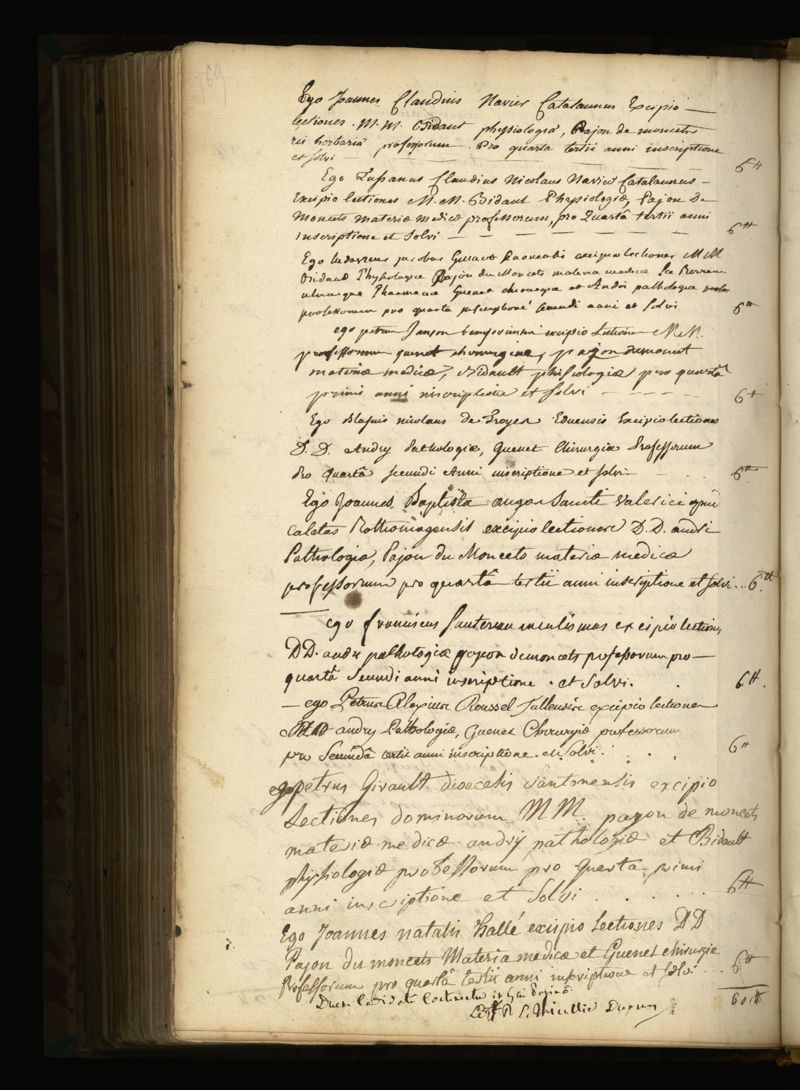 Ego Joannes Claudius Navier Catalaunus Excipio
lectiones M.M. Bidaut physiologiæ, Pajon de moncets
rei herbariæ professorum. Pro quarta tertii anni inscriptione
et solvi 6tt
Ego Jussanus Claudius Nicolaus Navier Catalaunus
Excipio lectiones M.M. Bidaut Physiologiæ, Pajon De
Moncets materiæ medicæ professorum, pro Quartâ tertii anni
inscriptione et solvi 6tt
Ego jacobus excipio lectiones M M
Bidaud Physiologiæ Pajon du Moncets materia medica
Pharmaciæ Guenet chirurgiæ et Andri pathologia
professorum pro quarta inscriptione secundi anni et solvi 6tt
ego petrus Janson excipio Lectiones M.M.
professorum guenet chirurgiæ, pajon dumoncet
materiæ medicæ, Bidault phisiologiæ pro quartâ
primi anni inscriptione et solvi 6tt
Ego Blasius nicolaus de Troyes Eduensis Excipio lectiones
D.D. Andry Pathologiæ, Guenet Chirurgiæ Professorum
Pro Quartâ secundi Anni inscriptione et solvi 6tt
Ego Joannes Baptista auger Sancti Valerici apud
Caletas Rothomagensis excipio lectiones D.D. andri
Pathologiæ, Pajon du Moncets materiæ medicæ
professorum pro quartâ tertii anni inscriptione et solvi.. 6tt
Ego franciscus Sautereau excipio lectiones
DD. andri pathologiæ pajon demoncets professorum pro
quartâ Secundi anni inscriptione . et Solvi. 6tt.
ego Petrus Alexius Roussel Tullensis excipio lectiones
DD andry Pathologiæ, Guenet Chirurgiæ professorum
pro Secundâ tertii anni inscriptione . et solvi. 6tt
ego petrus Girault dioecesis Santonensis excipio
Lectiones dominorum MM. pajon de moncets
materiæ medicæ andrÿ pathologiæ et Bidault
physiologiæ professorum pro quarta primi
anni inscriptione et Solvi 6tt
Ego Joannes natalis hallé excipio Lectiones DD
Pajon du moncets Materia medicæ et Guenet chirurgiæ
Professorum pro quartâ tertii anni inscriptione et solvi 6tt
in hac paginâ 60tt